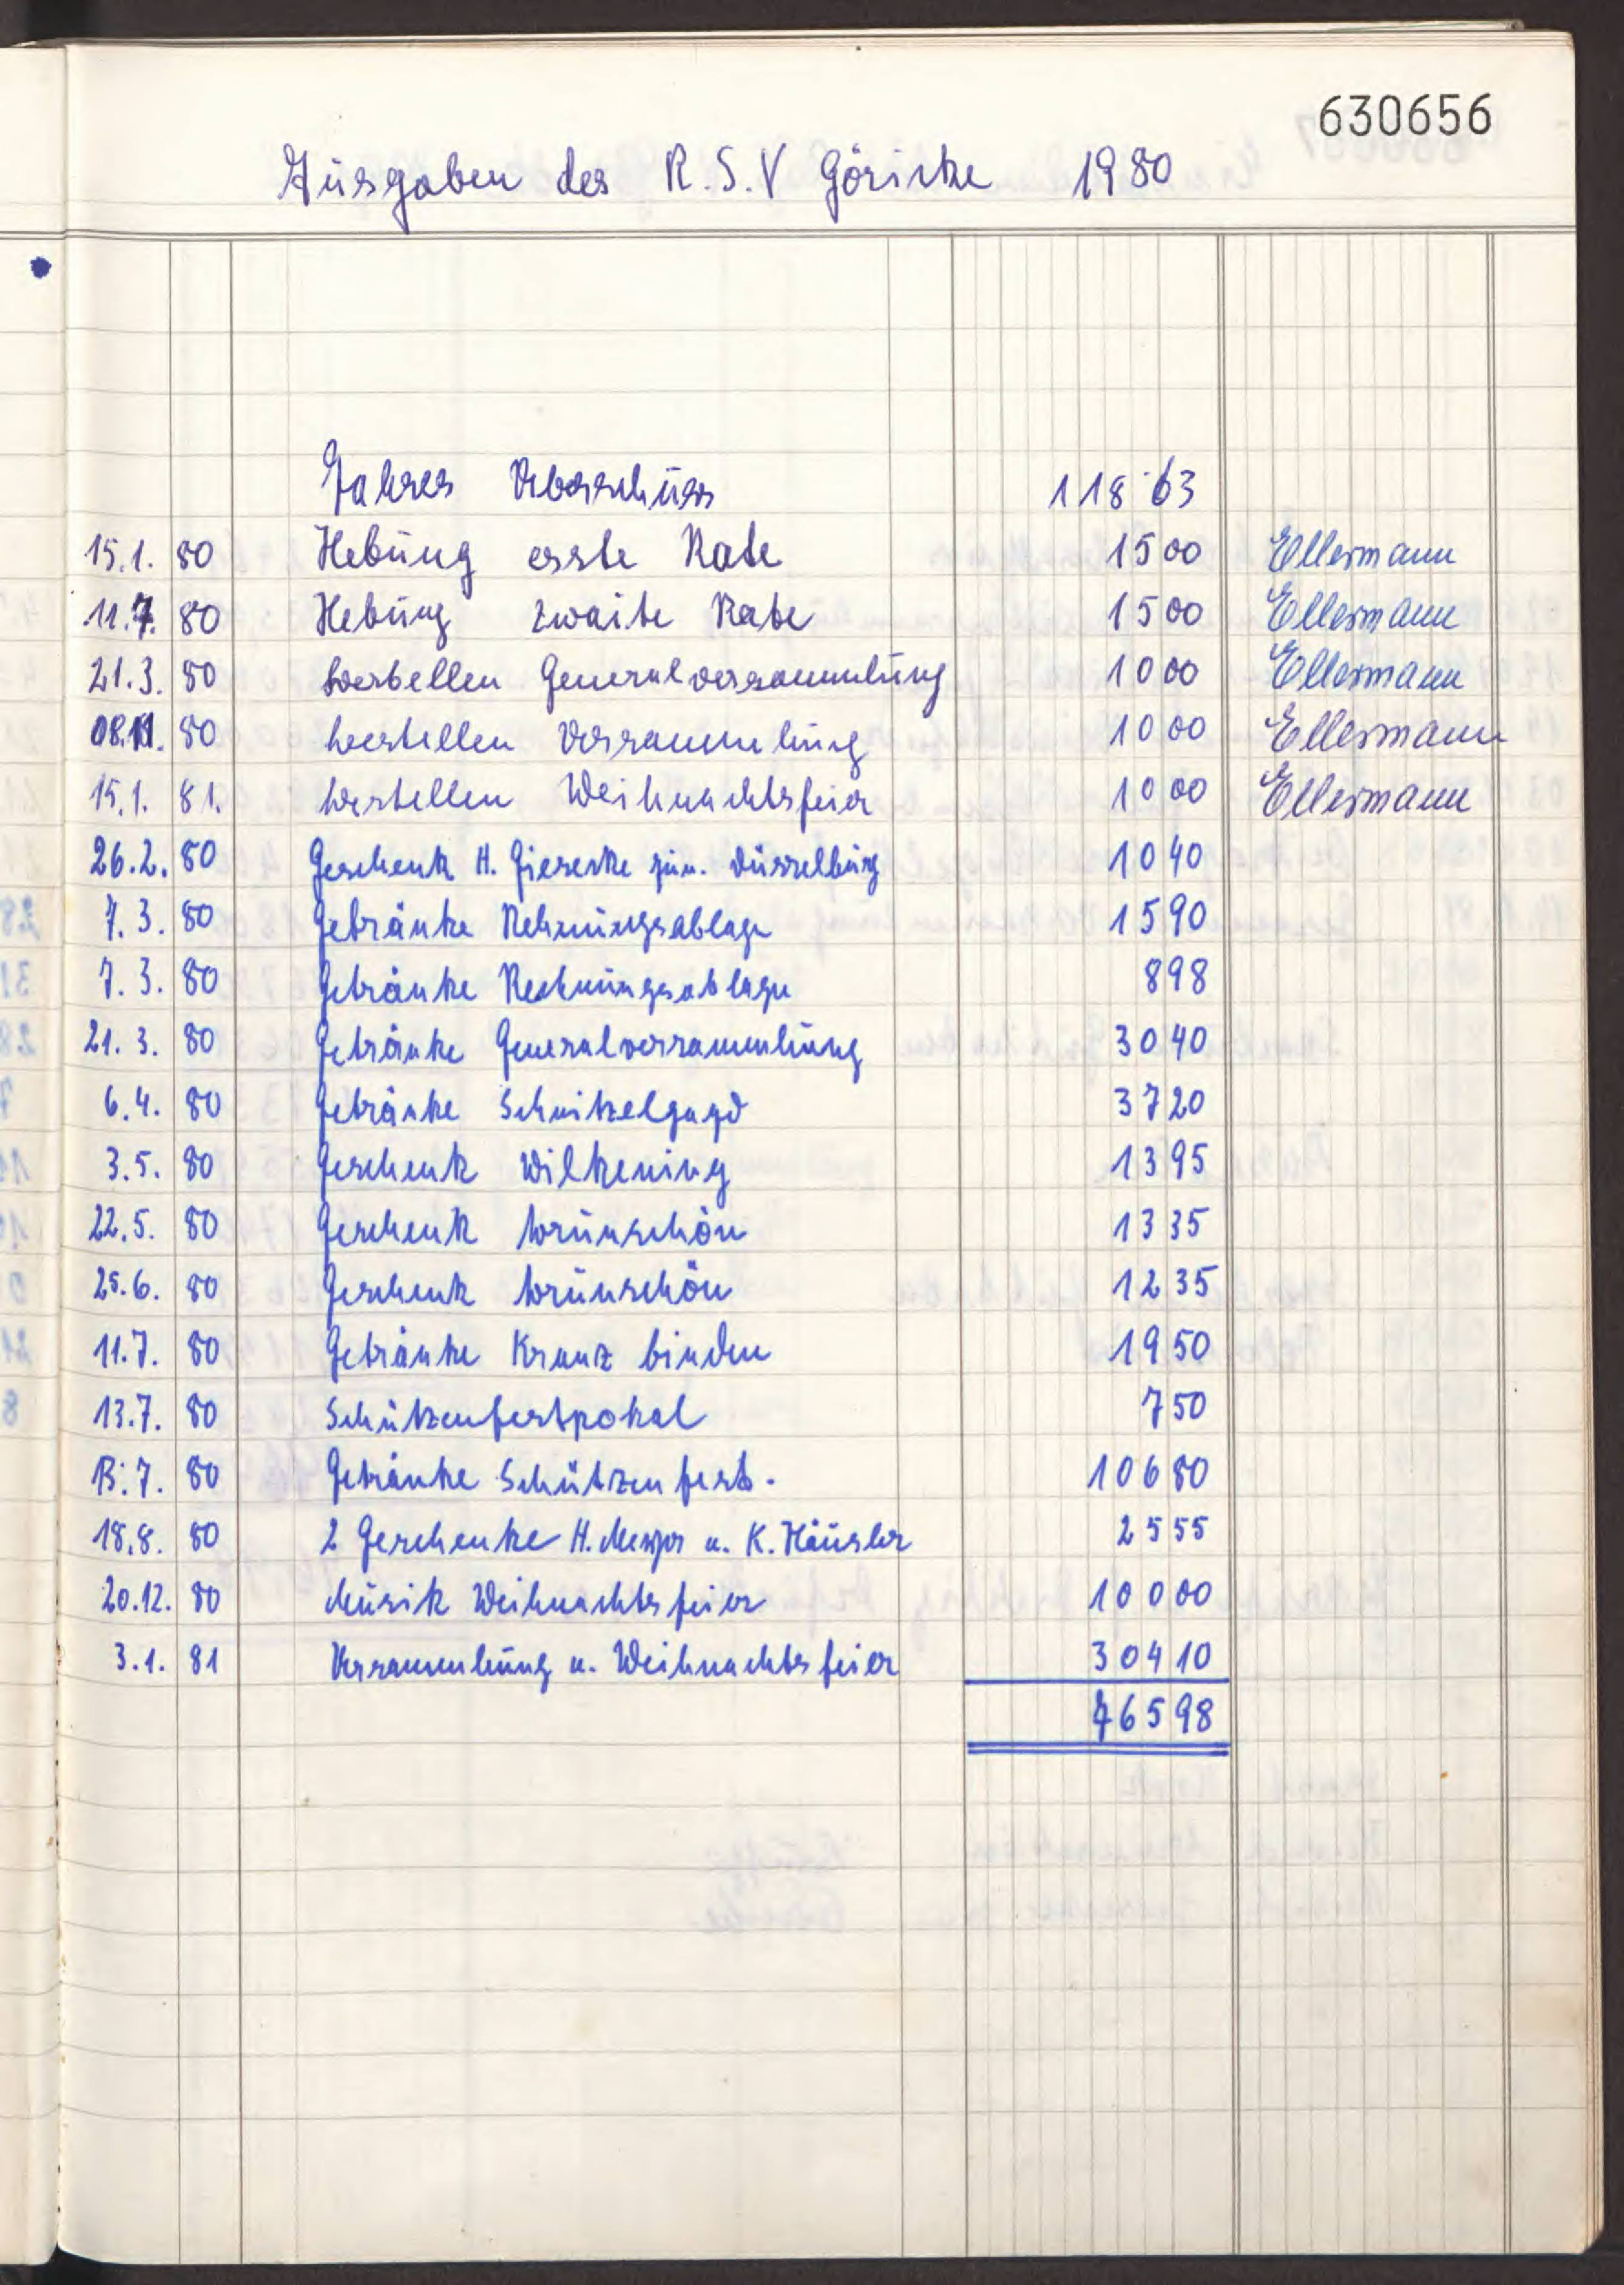 630656
Ausgaben des R.S.V Göricke 1980
Jahres Überschuss 118 63
15.1. 80 Hebung erste Rate 15 00 Ellermann
11.7. 80 Hebung zwaite Rate 15 00 Ellermann
21.3. 80 bestellen Generalversammlung 10 00 Ellermann
08.11. 80 bestellen Versammlung 10 00 Ellermann
15.1. 81. bestellen Weihnachtsfeier 10 00 Ellermann
26.2. 80 Geschenk H. Gieseke jun. Düsselburg 10 40
7.3. 80 Getränke Rehnungsablage 15 90
7.3. 80 Getränke Rechnungsablage 8 98
21.3. 80 Getränke Generalversammlung 30 40
6.4. 80 Getränke Schnitzelgagd 37 20
3.5. 80 Geschenk Wilkening 13 95
22.5. 80 Geschenk Brünschön 13 35
25.6. 80 Geschenk Brünschön 12 35
11.7. 80 Getränke Kranz binden 19 50
13.7. 80 Schützenfestpokal 7 50
13.7. 80 Getränke Schützenfest. 106 80
18.8. 80 2 Geschenke H. Meyer u. K. Häusler 25 55
20.12. 80 Musik Weihnachtsfeier 100 00
3.1. 81 Versammlung u. Weihnachtsfeier 304 10
765 98